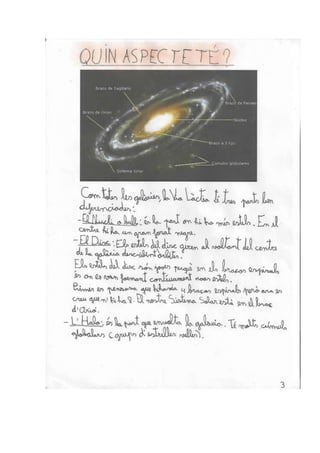 QUIN ASPECTE TÉ?
Brazo de Sagitario
Brazo de Perseo
Brazo de Orión
Núcleo
Brazo a 3 Kpc
Cúmulos globulares
Sistema Solar
Com totes les galàxies la Via Làctia té tres parts ben
diferenciades:
- El Nucli o bulb: és la part on hi ha més estels. En el
centre hi ha un gran forat negre.
- El Disc: Els estels del disc giren al voltant del centre
de la galàxia descrivint òrbites.
Els estels del disc són joves perquè en els braços espirals
és on es van formant contínuament nous estels.
es pensava que hi havia 4 braços espirals però ara es
creu que n'hi ha 2. El nostre Sistema Solar està en el braç
d'Orió.
- L'Halo: és la part que envolta la galàxia. Té molts cúmuls
globulars (grups d'estrelles velles).
3